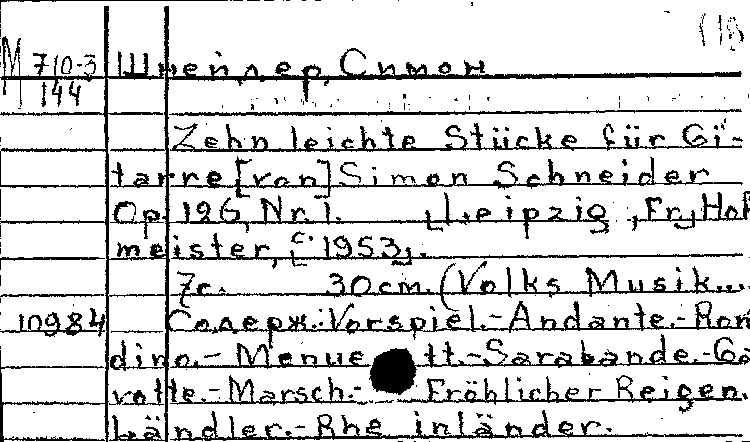 М 710-3 Шнейдер, Симон
144
Zehn leichte Stücke für Gi-
tarre [von] Simon Schneider
Op. 126, Nr. 1. Leipzig, Fr. Hof
meister, [1953].
7c. 30cm. (Volks Musik...
10984 Содерж.: Vorspiel.-Andante.-Ron
dino.-Menuett.-Sarabande.-Ga
votte.-Marsch.-Fröhlicher Reigen.
Ländler.-Rheinländer.